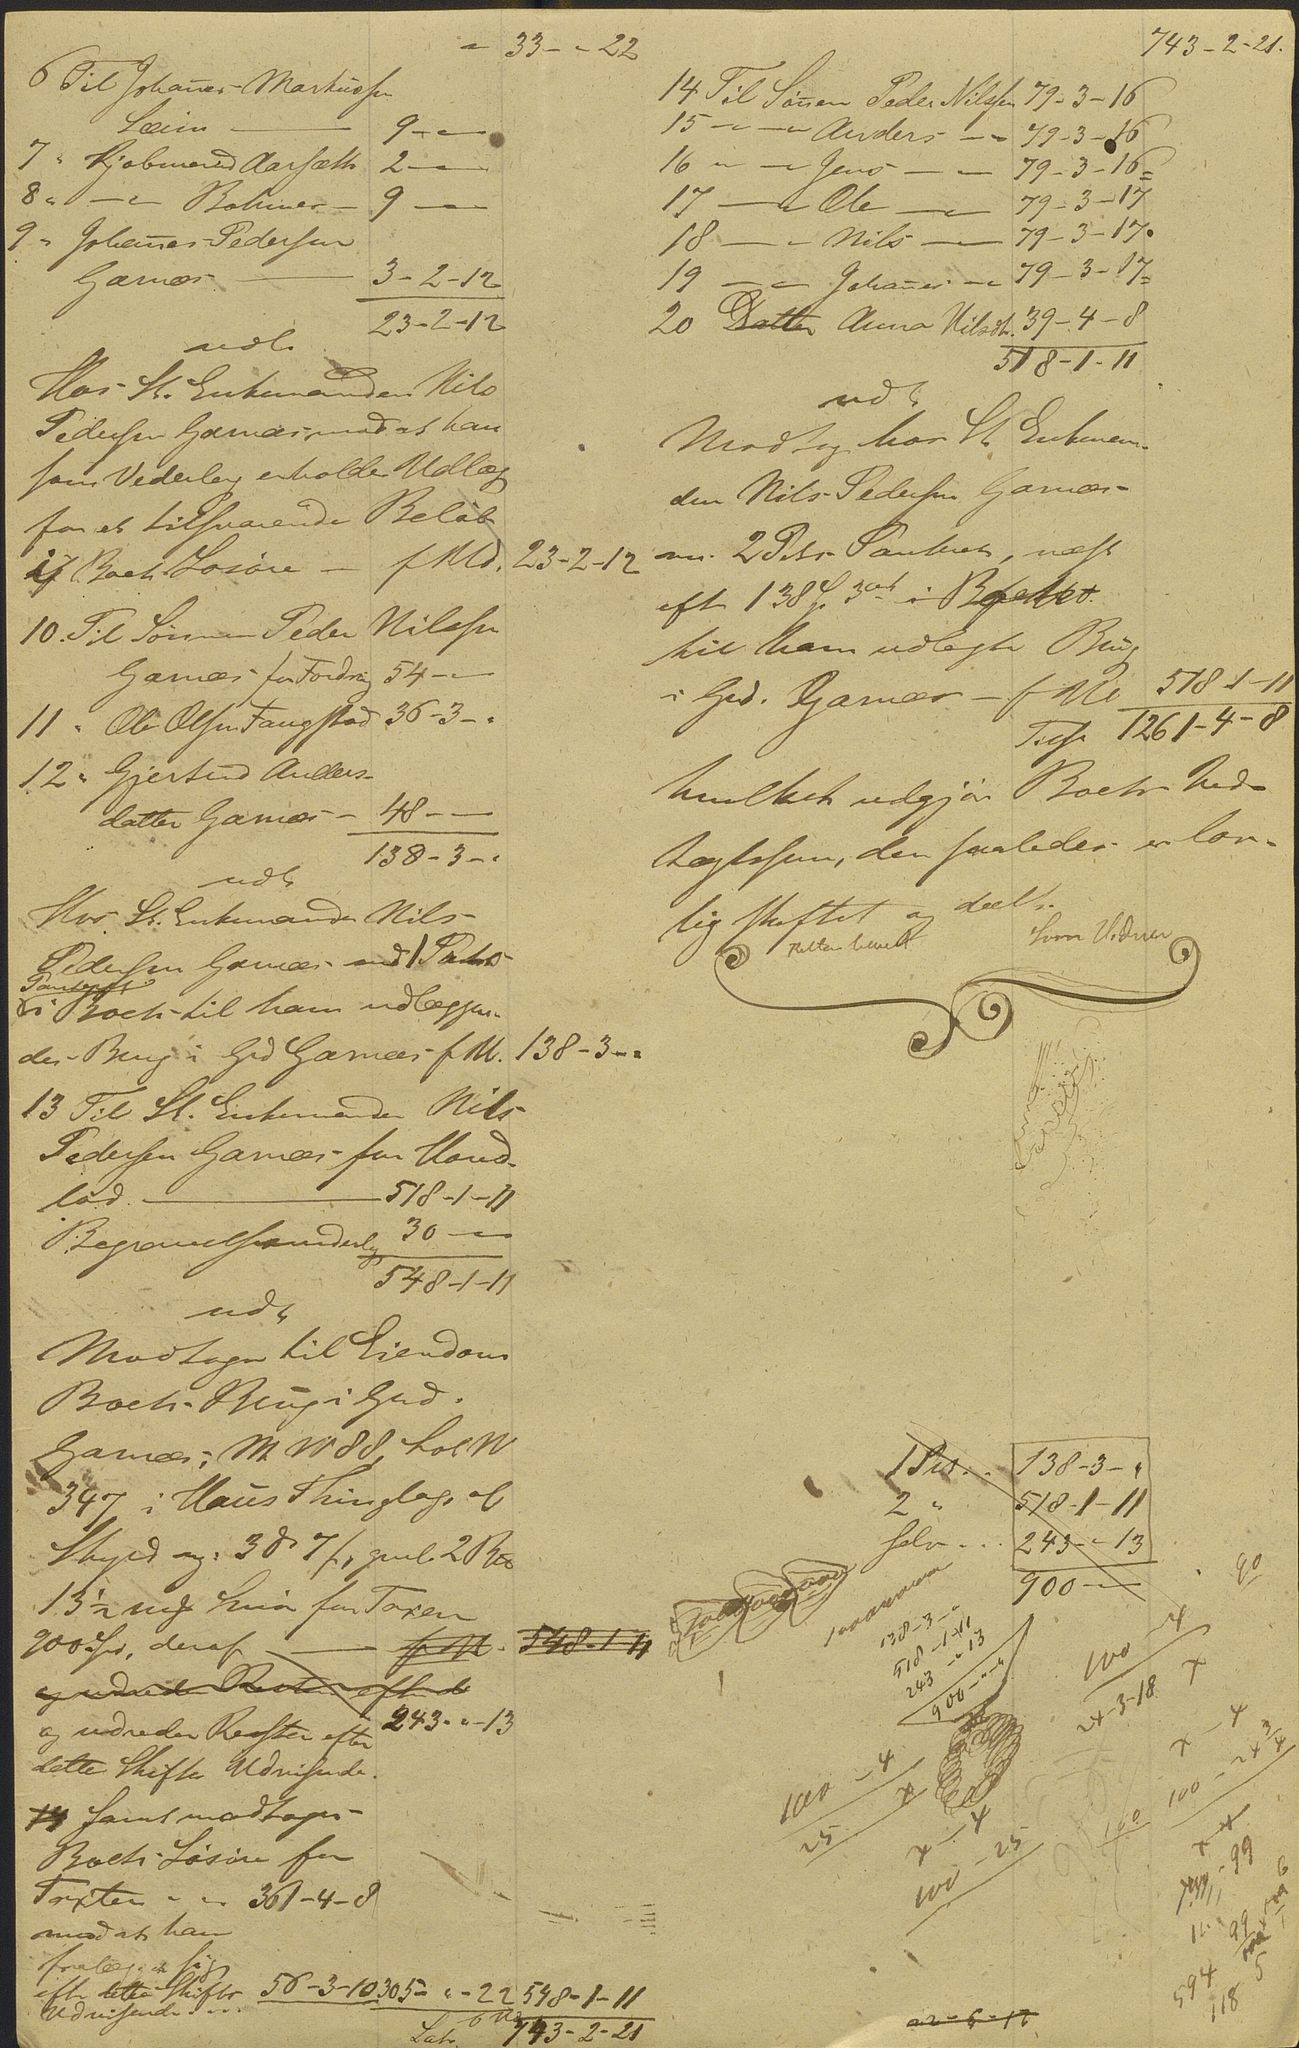 " 33 - " 22
6 Til Johannes Markussen
Leiren — 9 - "
7 " Kjøbmand Aarsæth 2 - "
8 " — " Bøhmer — 9 - "
9 " Johannes Pedersen
Garnæs — 3 - 2 - 12
23 - 2 - 12
udl.
Hos St. Enkemanden Nils
Pedersen Garnæs, mod at han
som Vederlag erholder Udlæg
for et tilsvarende Beløb
Boets Løsøre — 23 - 2 - 12
10. Til Sønnen Peder Nilssen
Garnæs for Fordring 54 - "
11 " Ole Olsen Fangstad 36 - 3 - "
12 " Gjertrud Anders-
datter Garnæs — 48 - "
138 - 3 - "
udl.
Hos St. Enkemanden Nils
Pedersen Garnæs 1 Pets
i Boets til ham udlæggen-
des Brug i Grd Garnæs 138 - 3 - "
13 Til St. Enkemanden Nils
Pedersen Garnæs for Hoved-
lod — 518 - 1 - 11
Begravelsesvederlag 30 - "
548 - 1 - 11
udl.
Modtager til Eiendom
Boets Brug i Grd.
Garnæs, M. N 88, Løb N
347 i Haus Thinglag af
Skyld ny: 3 d 7 s, gml. 2
13½ mrk for Taxten
900 Spd, deraf — 548 - 1 - 11
243 - " - 13
og udreder Resten efter
dette Skiftes Udvisende.
14 samt modtager
Boets Løsøre for
Taxten " " 361 - 4 - 8
mod at han
efter dette Skiftes 56 - 3 - 10 305 - " - 22 548 - 1 - 11
Udvisende
Lat. 743 - 2 - 21
743 - 2 - 21.
14 Til Sønnen Peder Nilssen 79 - 3 - 16
15 — " — Anders — " 79 - 3 - 16
16 " — " Jens — " 79 - 3 - 16
17 — " Ole — " 79 - 3 - 17
18 — " Nils — 79 - 3 - 17
19 — " Johannes — " 79 - 3 - 17
20 Datter Anna Nilsdtr. 39 - 4 - 8
518 - 1 - 11
udl.
Modtag hos St Enkeman-
den Nils Pedersen Garnæs
m. 2 Pets Panteret, næst
efter 138 Sp 3 ort i Boets
til ham udlagte Brug
i Grd. Garnæs — 518 - 1 - 11
Tils. 1261 - 4 - 8
hvilket udgjør Boets Ind-
tægtssum, der saaledes er lov-
lig skiftet og deelt.
Retten hævet Som Vidner
1 Pris . . 138 - 3 - "
2 " 518 - 1 - 11
Selv . . . 243 - " 13
900 - "
90
138 - 3 - "
518 - 1 - 11
243 - " 13
900 - " - "
100 - 4
24 - 3 - 18 x
100 - 4
25 x
x - 4
100 - 25
x - 4
100 - 24 3/4
100
99
594
118
5